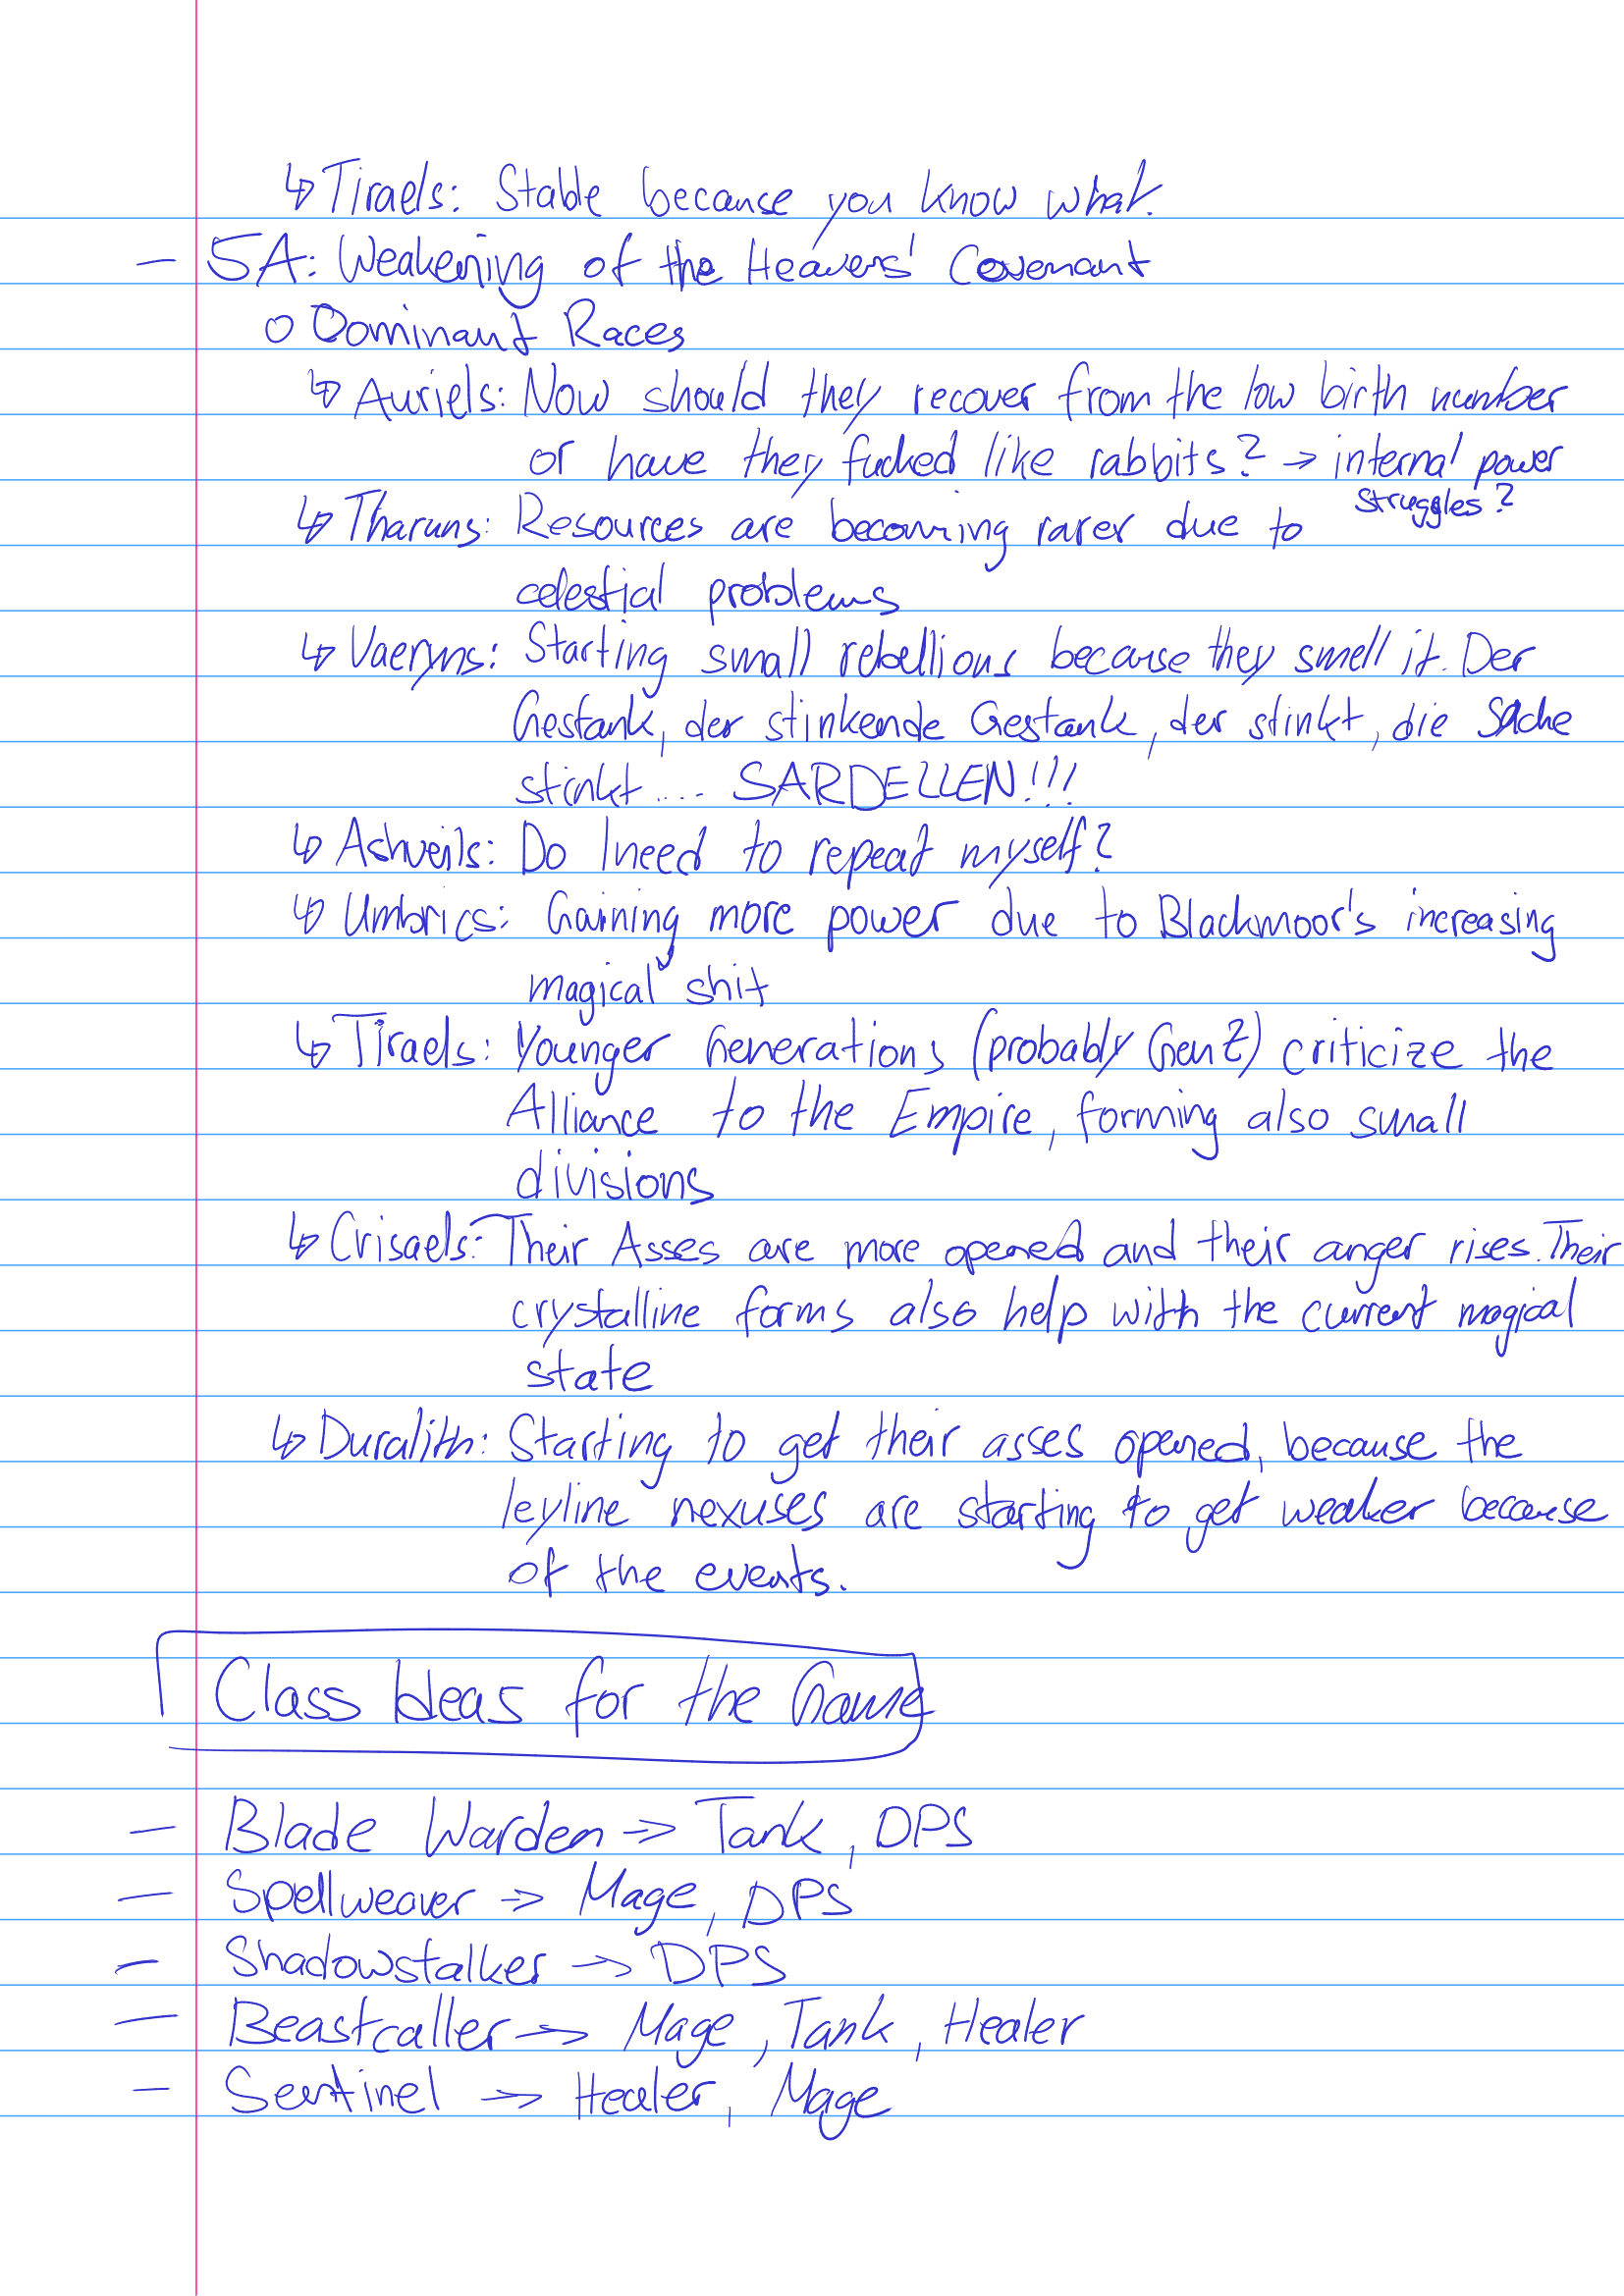 ↳ Tiraels: Stable because you know what.
– 5A: Weakening of the Heavens' Covenant
o Dominant Races
↳ Auriels: Now should they recover from the low birth number
or have they fucked like rabbits? → internal power
struggles?
↳ Tharuns: Resources are becoming rarer due to
celestial problems
↳ Vaeryns: Starting small rebellions because they smell it. Der
Gestank, der stinkende Gestank, der stinkt, die Sache
stinkt.... SARDELLEN!!!
↳ Ashveils: Do I need to repeat myself?
↳ Umbrics: Gaining more power due to Blackmoor's increasing
magical shit
↳ Tiraels: Younger Generations (probably Gen Z) criticize the
Alliance to the Empire, forming also small
divisions
↳ Crisaels: Their Asses are more opened and their anger rises. Their
crystalline forms also help with the current magical
state
↳ Duralith: Starting to get their asses opened, because the
leyline nexuses are starting to get weaker because
of the events.
Class Ideas for the Game
– Blade Warden → Tank, DPS
– Spellweaver → Mage, DPS
– Shadowstalker → DPS
– Beastcaller → Mage, Tank, Healer
– Sentinel → Healer, Mage